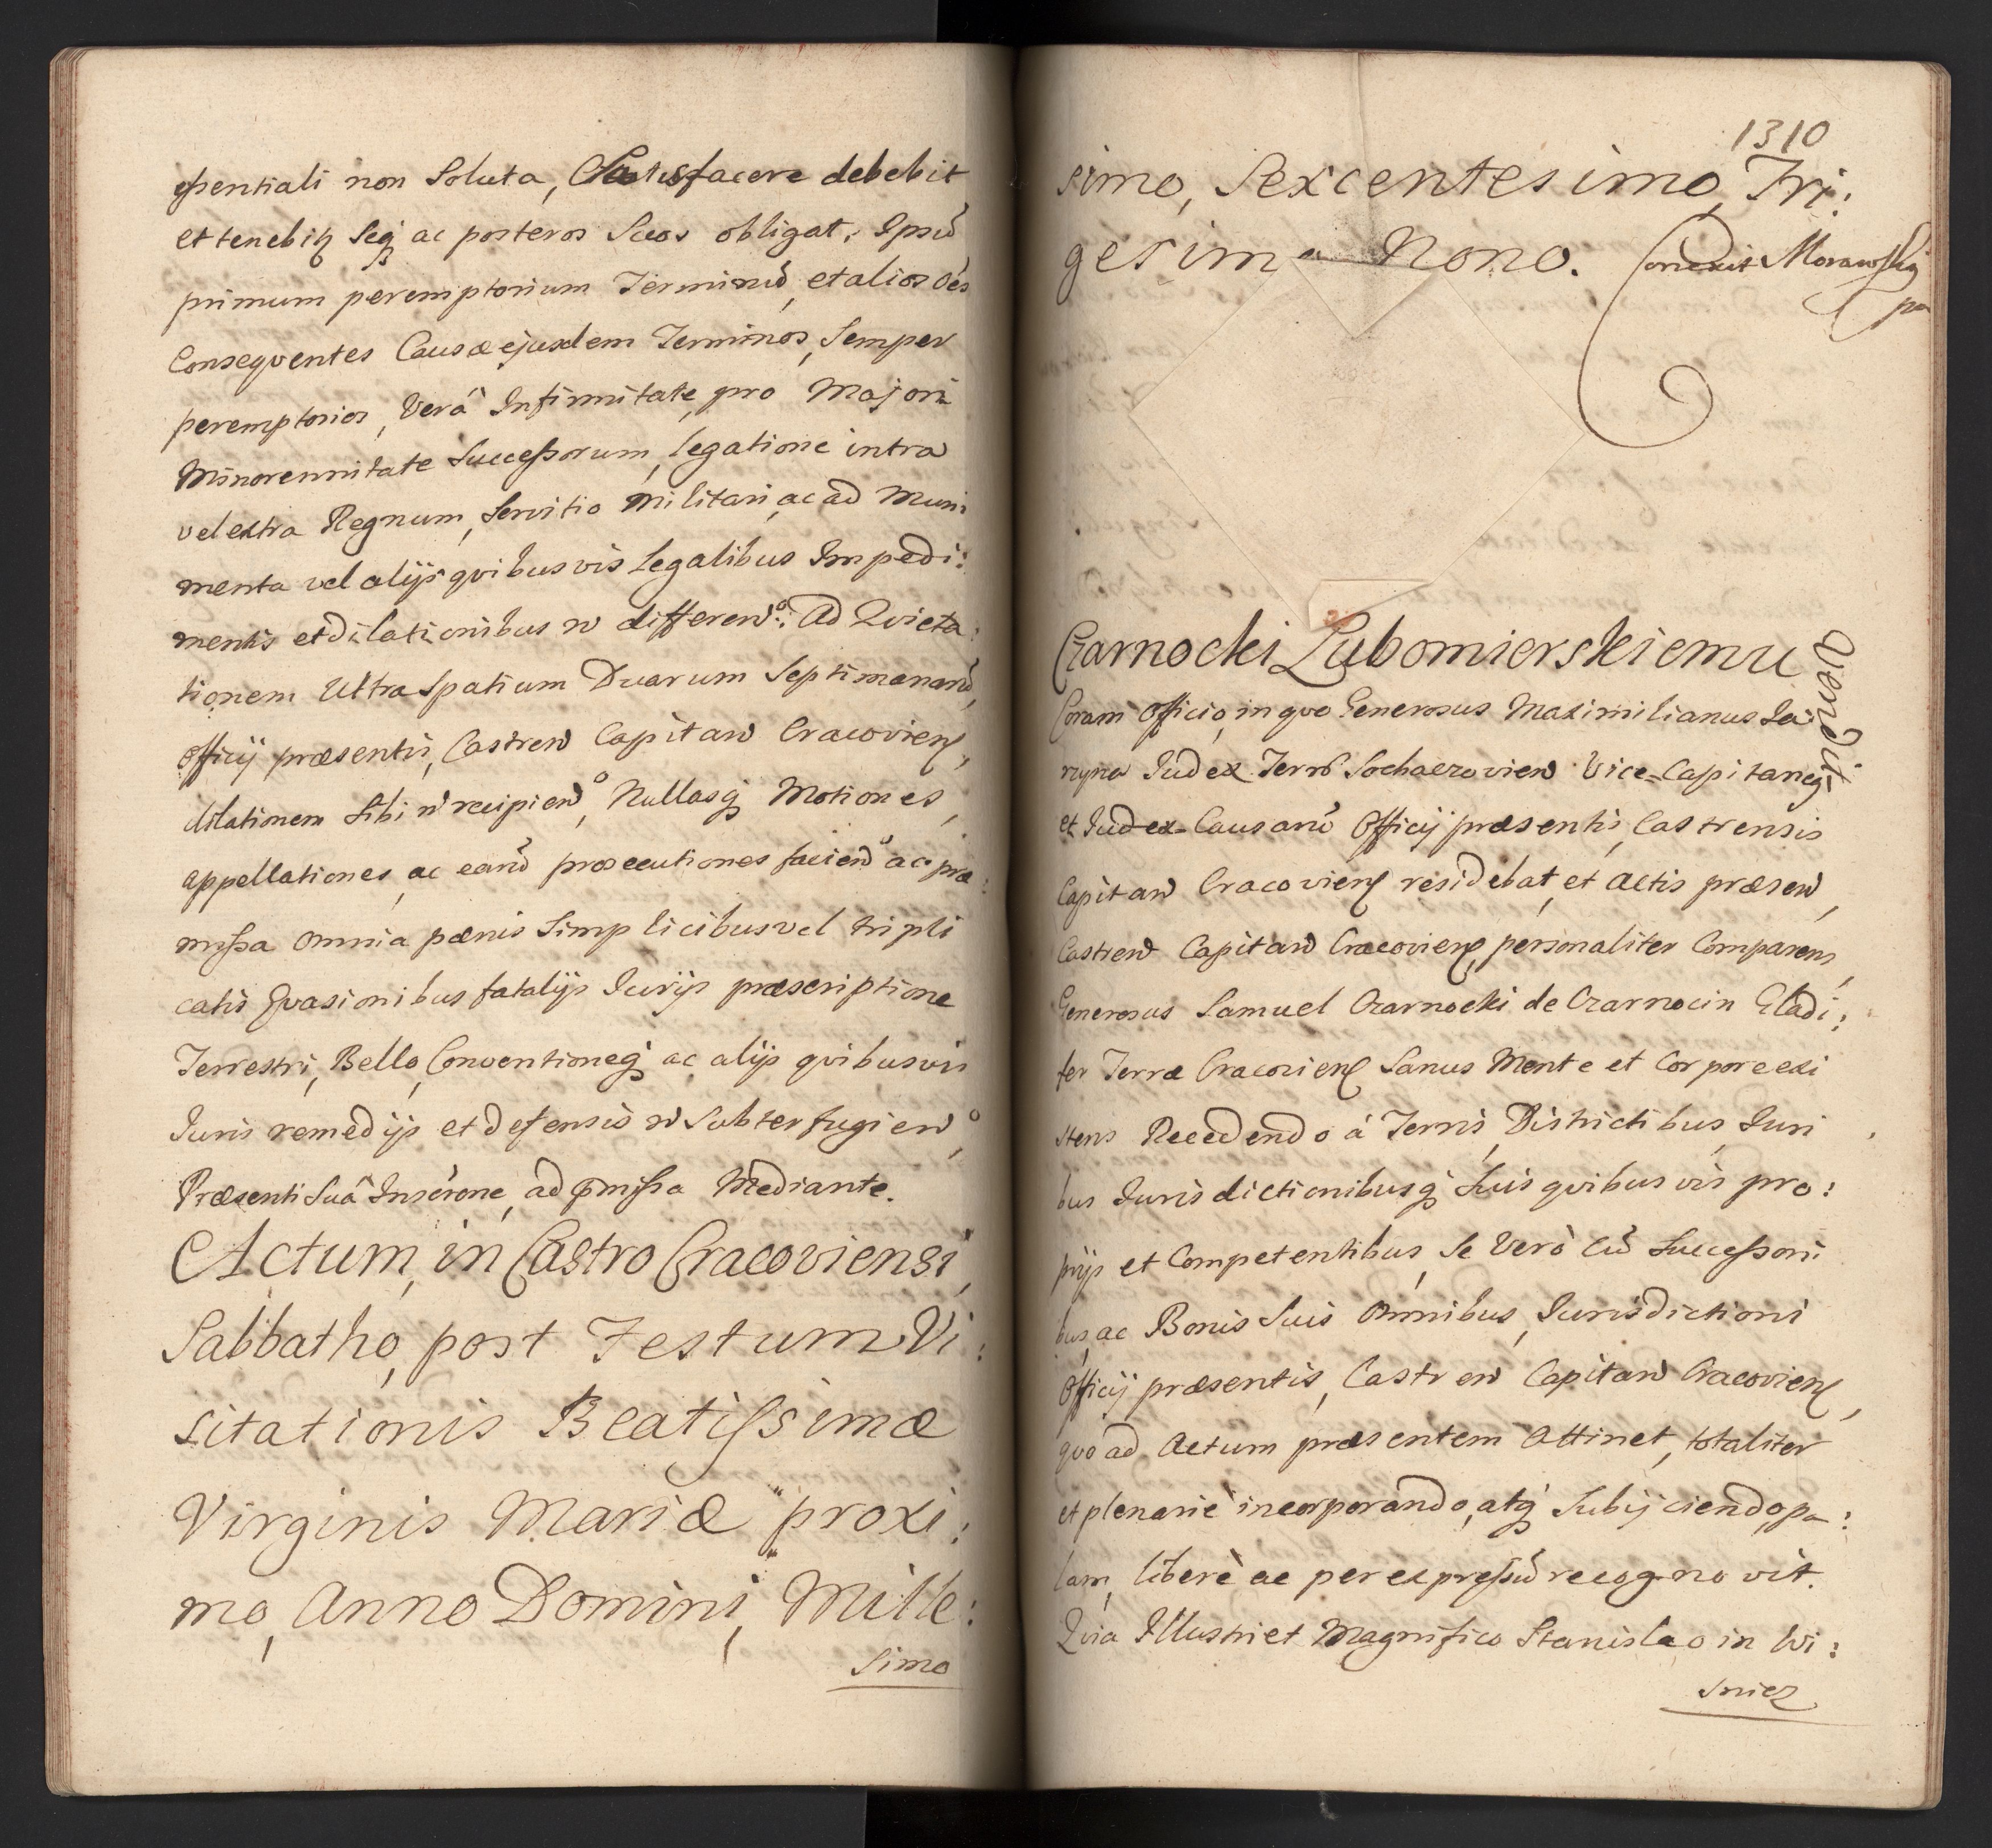 ssentiali non Soluta, Satisfacere debebit
et tenebitʒ Seqʒ ac posteros Suos obligat. Ipsũ
primum peremptorium Terminũ, et alios oẽs
Conseqventes Causæ ejusdem Terminos, Semper
peremptorios, Verâ Infirmitate, pro Majori
Minorennitate Successorum, legatione intra
vel extra Regnum, Servitio Militari, ac ad Muni
menta vel alijs qvibusvis Legalibus Impedi:
mentis et dilationibus ñ differenđ°: Ad Qvieta:
tionem Ultra Spatium Duarum Septimanarũ,
Officij præsentis, Castren̄ Capitan̄ Cracovien̄,
dilationem Sibi ñ recipien̄°, Nullasqʒ Motiones,
appellationes, ac earũ prosecutiones facien̄° ac præ:
missa Omnia pœnis Simplicibus vel tripli
catis Evasionibus fatalijs Jurijs præscriptione
Terrestri, Bello, Conventioneqʒ ac alijs qvibusvis
Juris remedijs et defensis ñ Subterfugien̄°,
Præsenti Suâ Inscrõne, ad p̃missa Mediante.
Actum, in Castro Cracoviensi,
Sabbatho, post Festum Vi:
sitationis Beatissimæ
Virginis Mariæ proxi:
mo, Anno Domini, Mille:
simo
1310
simo, Sexcentesimo, Tri:
gesimo Nono. Correxit Morawski
Czarnocki Lubomierskiemu
Qvendit
Coram Officio, in qvo Generosus Maximilianus Ja
rzyna Judex Terrӕ Sochaczovien̄ Vice-Capitanqʒ
et Judex Causarũ Officij præsentis, Castrensis
Capitan̄ Cracovien̄ residebat, et Actis præsen̄,
Castren̄ Capitan̄ Cracovien̄, personaliter Comparens,
Generosus Samuel Czarnocki de Czarnocin Gladi:
fer Terræ Cracovien̄ Sanus Mente et Corpore exi
stens Recedendo á Terris, Districtibus, Juri
bus Jurisdictionibusqʒ Suis qvibus vis pro:
prijs et Competentibus, Se Verò cũ Successori
bus, ac Bonis Suis Omnibus, Jurisdictioni
Officij præsentis, Castren̄ Capitan̄ Cracovien̄,
qvo ad Actum præsentem Attinet, totaliter
et plenariè incorporando, atqʒ Subijciendo, pa:
lam, liberè ac per expressũ recognovit.
Qvia Illustri et Magnifico Stanislao in Wi:
snicz